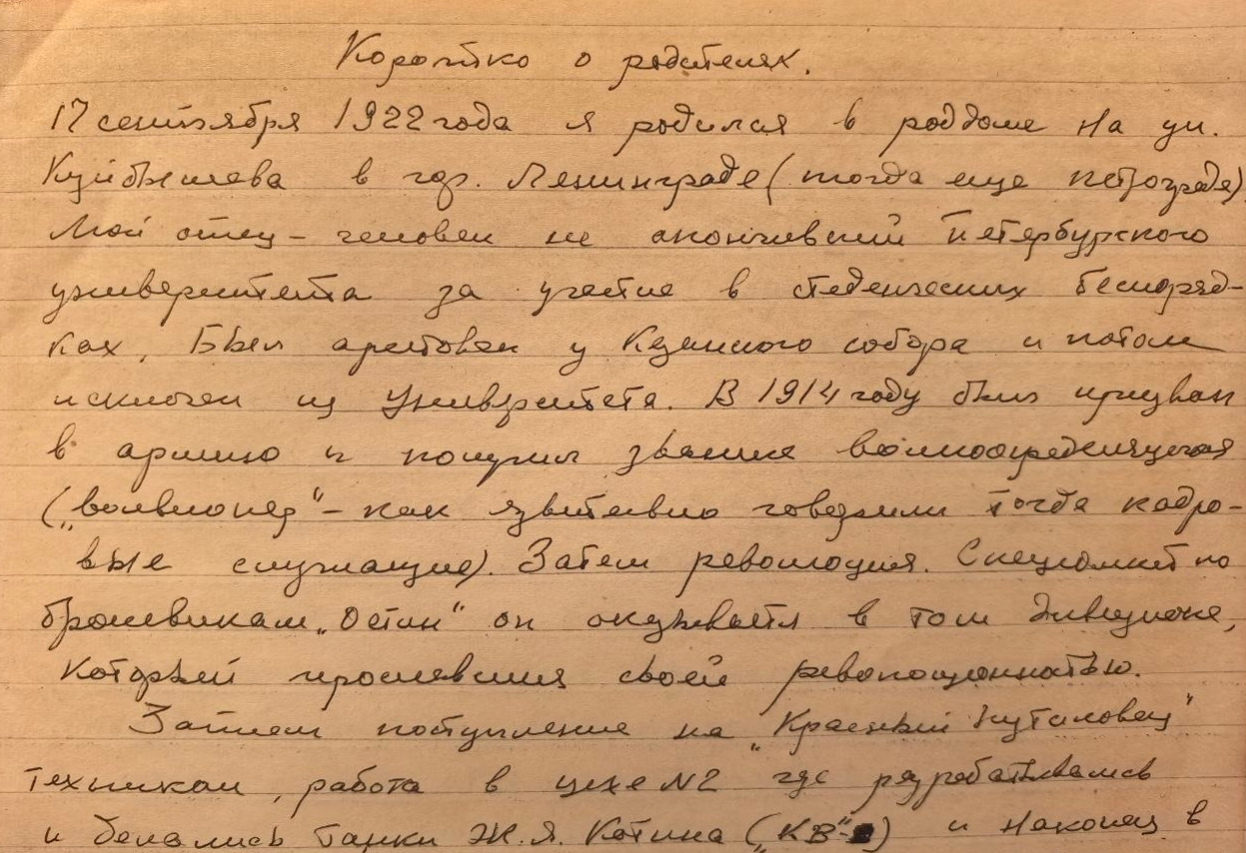 Коротко о родителях.
17 сентября 1922 года я родился в роддоме на ул.
Куйбышева в гор. Ленинграде (тогда еще Петрограде)
Мой отец – человек не окончивший Петербурского
университета за участие в студенческих беспоряд-
ках. Был арестован у Казанского собора и потом
исключен из Университета. В 1914 году был призван
в армию и получил звание вольноопределяющегося
(„вольнопер" – как язвительно говорили тогда кадро-
вые служащие). Затем революция. Специалист по
броневикам „Остин" он оказывается в том дивизионе,
который прославился своей революционностью.
Затем поступление на „Красный Путиловец"
техником, работа в цехе №2 где разрабатывались
и делались танки Ж.Я. Котина („КВ") и наконец в